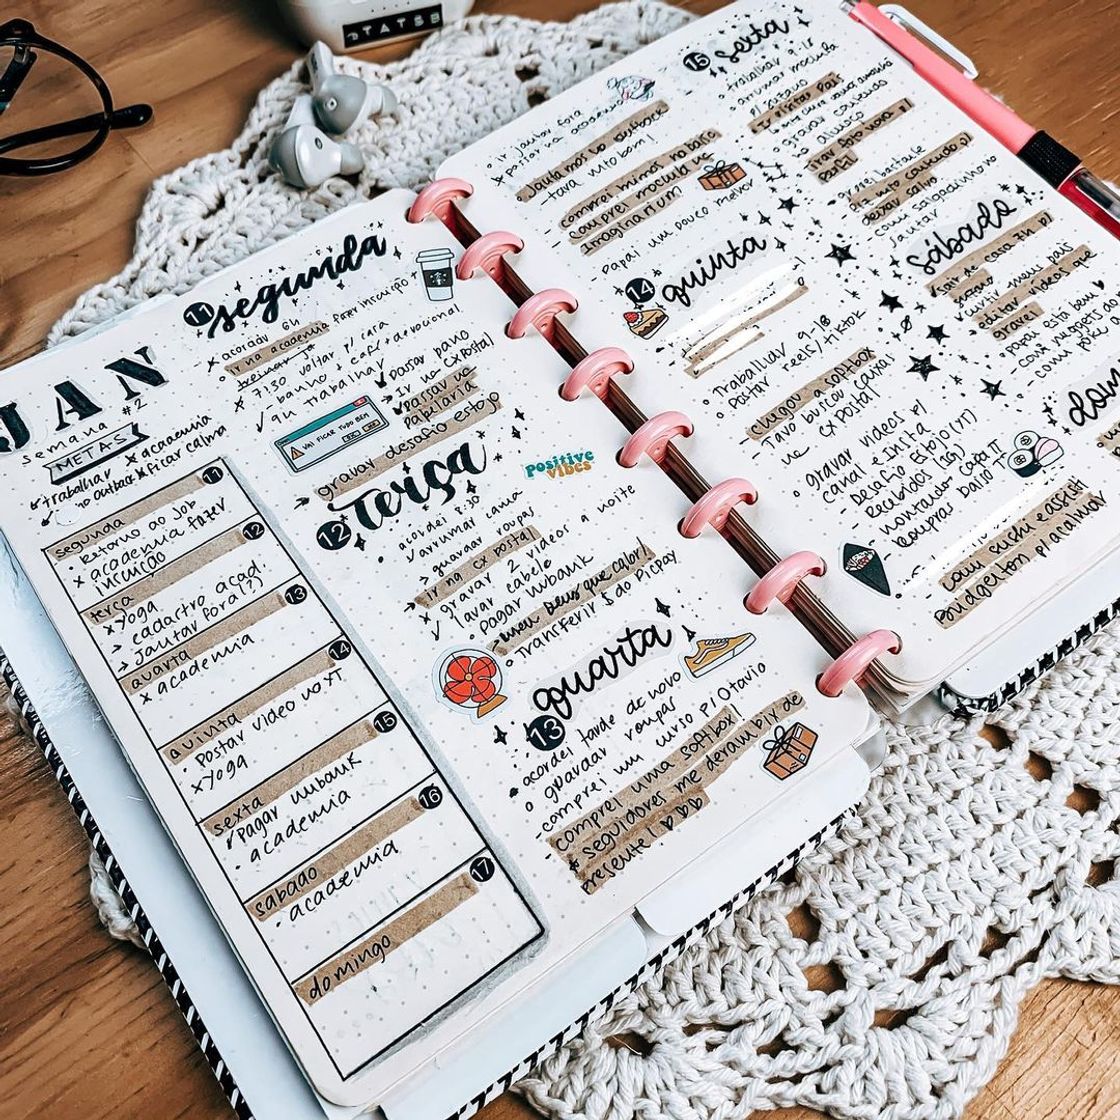 STATSB
JAN
semana #2
METAS
trabalhar × academia
no outback ficar calma
segunda 11
• Retorno ao job
× academia fazer
inscrição
terça 12
× yoga
cadastro acad.
> jantar fora(??)
quarta 13
× academia
quinta 14
• Postar video no YT
× yoga
sexta 15
Pagar nubank
• academia
sabado 16
• academia
17
domingo
11 segunda
× acordar 6H
• Ir na academia fazer inscrição
treinar já
× 7:30 voltar p/ casa
✓ banho + café + devocional
✓ 9H trabalhar
Passar pano
Ir na cx postal
Passar na
papelaria
VAI FICAR TUDO BEM
> gravar desafio estojo
12 terça
positive
vibes
acordei 8:30
✓ arrumar cama
> guardar roupas
> ir na cx postal
× gravar 2 videos a noite
✓ lavar cabelo
• Pagar nubank
meu Deus que calor!
• Transferir $ do PicPay
quarta
13
• acordei tarde de novo
o guardar roupas
- comprei um curso p/ Otavio
- comprei uma softbox!
* seguidores me deram bir de
presente! ♡♡♡
• ir jantar fora
× Postar na academia
• Janta no outback
tava muito bom!
comprei mimos no bairro
comprei mochila na
Imaginarium
Papai um pouco melhor
14 quinta
• Trabalhar 9-18
• Postar reels/tiktok
- chegou softbox
- Tavo buscou caixa
na cx postal
• gravar videos p/
canal e insta
- desafio Estojo (YT)
- Recebidos (IGS)
- montando capa TT
- compras Daiso TT
- comi sushi e assisti
Bridgerton p/ acalmar
15 sexta
• trabalhar 9-18
• arrumar mochila
p/ sítio
• gravar conteudo
p/ almoço
- tirar foto nova p/
perfil
- gravei bastante
conteudo p/
deixar salvo
- comi salgadinho no
jantar
sábado
- sair de casa 7H p/
sítio
- curtir meus pais
- editar videos que
gravei
- papai está bem ♥
- comi nuggets do